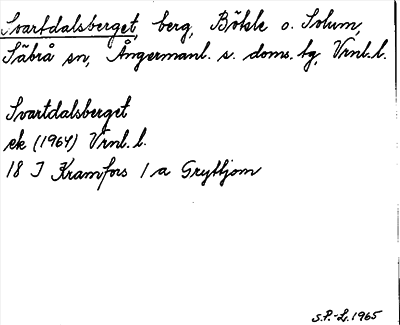 Svartdalsberget, berg, Bölsle o. Solum,
Säbrå sn, Ångermanl. s. doms. tg, Vrnl. l.
Svartdalsberget
ek (1964) Vrnl. l.
18 I Kramfors 1 a Gryttjom
S.P.-L. 1965